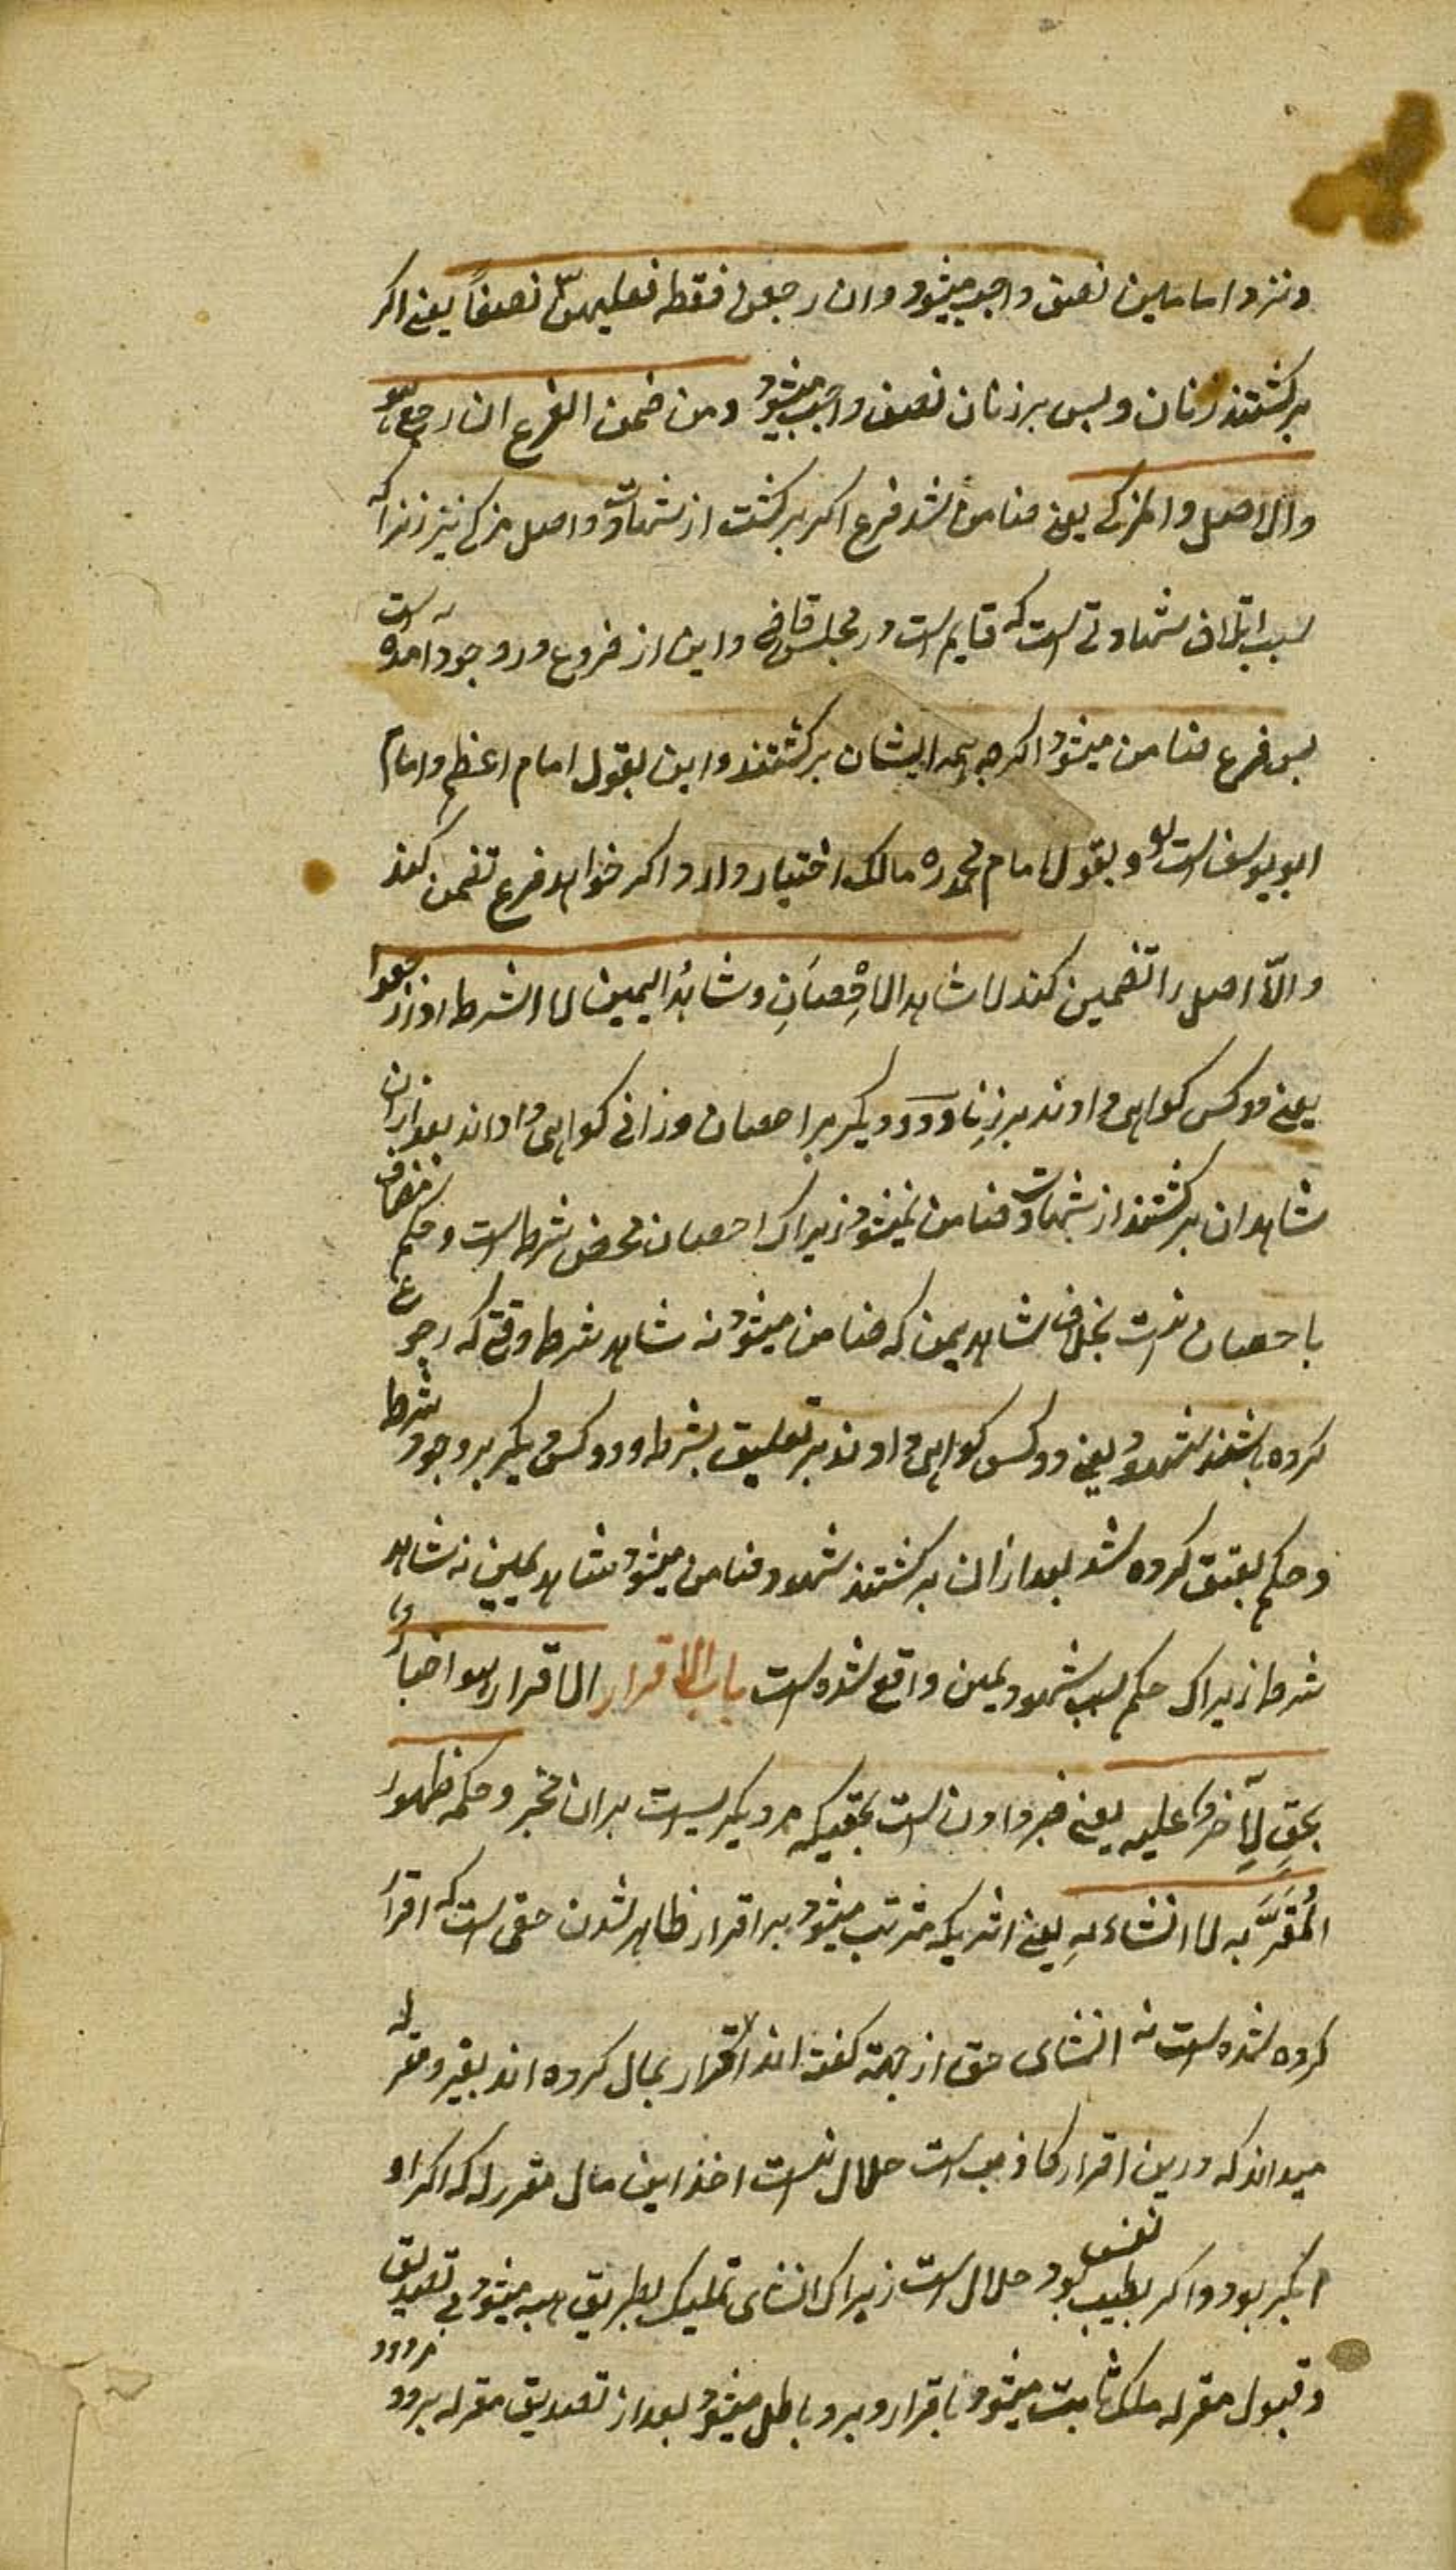 و نزد امامین نصف واجب میشود وان رجعن فقط فعلیهن نصفاً یعنی اکر
برکشتند زنان و بس برزنان نصف واجب میشود و من ضمن الفرع ان رجع هو
والا اصل والمزکی یعنی ضامن شد فرع اکر برکشت از شهادت واصل مزکی نیز زیراکه
سبب اتلاف شهادتی است که قایم است در مجلس قاضی و این از فروع در وجود آمده است
بس فرع ضامن میشود اکرچه همه ایشان برکشتند و این بقول امام اعظم و امام
ابویوسف است و بقول امام محمد ره مالک اختیار دارد اکر خواهد فرع تضمن کند
والّا اصل را تضمین کند لا شاهد الاِحصَانِ و شاهدُ الیمین لا الشرط اذا رجعوا
یعنی دو کس کواهی دادند برزنا و دو دیکر بر احصان زانی کواهی دادند بعد ازان
شاهدان برکشتند از شهادت ضامن نمیشود زیراک احصان محض شرط است و حکم مضاف
باحصان نیست بخلاف شاهد یمین که ضامن میشود نه شاهد شرط وقتی که رجوع
کرده باشند شهود یعنی دو کس کواهی دادند بر تعلیق بشرط و دو کس دیکر بر وجود شرط
و حکم بعتق کرده شد بعد ازان برکشتند شهود ضامن میشود شاهد یمین نه شاهد
شرط زیراک حکم بسبب شهود یمین واقع شده است باب الاقرار الاقرار هو اخبارٌ
بحقٍ لِآخر علیه یعنی خبر دادن است بحقیکه مر دیکریست بران مخبر و حکمه ظهور
المُقَرِّ به لا انشاءه یعنی اثریکه مترتب میشود بر اقرار ظاهر شدن حقی است که اقرار
کرده شده است نه انشای حق ازجهته کفته اند اقرار بمال کرده اند بغیر و مقر له
میداند که درین اقرار کاذب است حلال نیست اخذ این مال مقر له که اکراو
بجبر بود و اکر بطیب نفس بود حلال است زیراک انشای تملیک بطریق هبه میشود بی تصدیق
و قبول مقرله ملک ثابت میشود باقرار و برد باطل میشود بعد از تصدیق مقرله برد رد